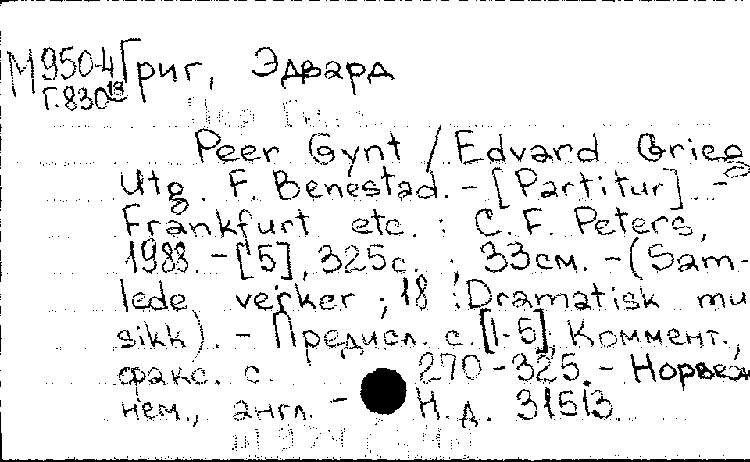 М950-4 Григ, Эдвард
Г.830 18
Пер Гюнт
Peer Gynt / Edvard Grieg
Utg. F. Benestad. - [Partitur]. -
Frankfurt etc. : C. F. Peters,
1988. - [5], 325 с. ; 33 см. - (Sam-
lede verker ; 18 : Dramatisk mu
sikk). - Предисл. с. [1-5], Коммент.,
факс. с. 270-325. - Норвеж
нем., англ. - Н. д. 31513.